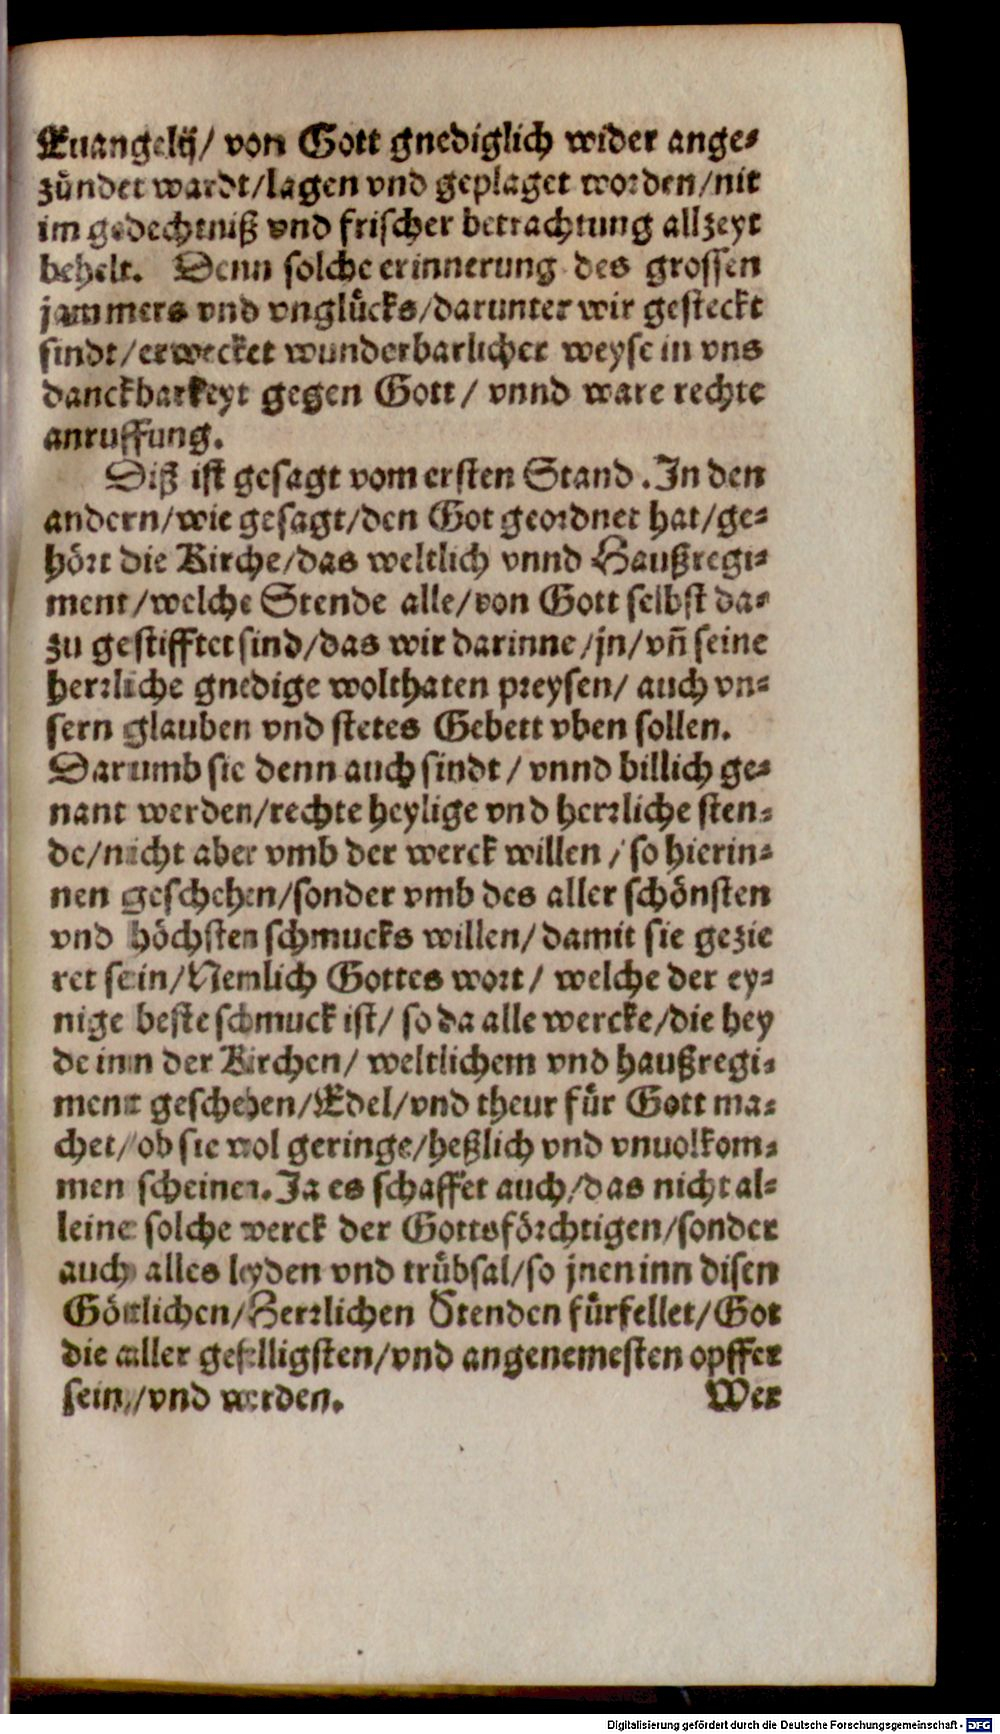 Euangelij/ von Gott gnediglich wider ange⸗
zündet wardt/lagen vnd geplaget worden/nit
im gedechtniß vnd frischer betrachtung allzeyt
behelt. Denn solche erinnerung des grossen
jammers vnd vnglücks/darunter wir gesteckt
sindt/erwecket wunderbarlicher weyse in vns
danckbarkeyt gegen Gott/ vnnd ware rechte
anruffung.
Diß ist gesagt vom ersten Stand. In den
andern/wie gesagt/den Got geordnet hat/ge⸗
hört die Kirche/das weltlich vnnd Haußregi⸗
ment/welche Stende alle/von Gott selbst da⸗
zu gestifftet sind/das wir darinne/jn/vñ seine
herrliche gnedige wolthaten preysen/ auch vn⸗
sern glauben vnd stetes Gebett vben sollen.
Darumb sie denn auch sindt/ vnnd billich ge⸗
nant werden/rechte heylige vnd herrliche sten⸗
de/nicht aber vmb der werck willen/ so hierin⸗
nen geschehen/sonder vmb des aller schönsten
vnd höchsten schmucks willen/ damit sie gezie
ret sein/Nemlich Gottes wort/ welche der ey⸗
nige beste schmuck ist/ so da alle wercke/die bey
de inn der Kirchen/ weltlichem vnd haußregi⸗
ment geschehen/Edel/vnd theur für Gott ma⸗
chet/ob sie wol geringe/heßlich vnd vnuolkom⸗
men scheinen. Ja es schaffet auch/das nicht al⸗
leine solche werck der Gottsförchtigen/sonder
auch alles leyden vnd trübsal/so jnen inn disen
Göttlichen/Herrlichen Stenden fürfellet/Got
die aller gefelligsten/vnd angenemesten opffer
sein/vnd werden. Wer
Digitalisierung gefördert durch die Deutsche Forschungsgemeinschaft - DFG